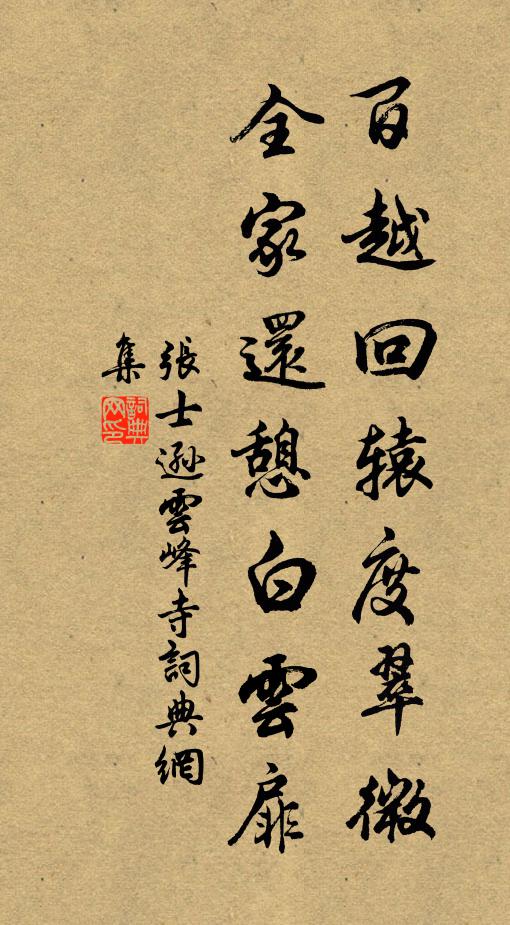 百越回辕度翠微
全家還憩白雲扉
張士遜雲峰寺詞典網
集
詞典网印